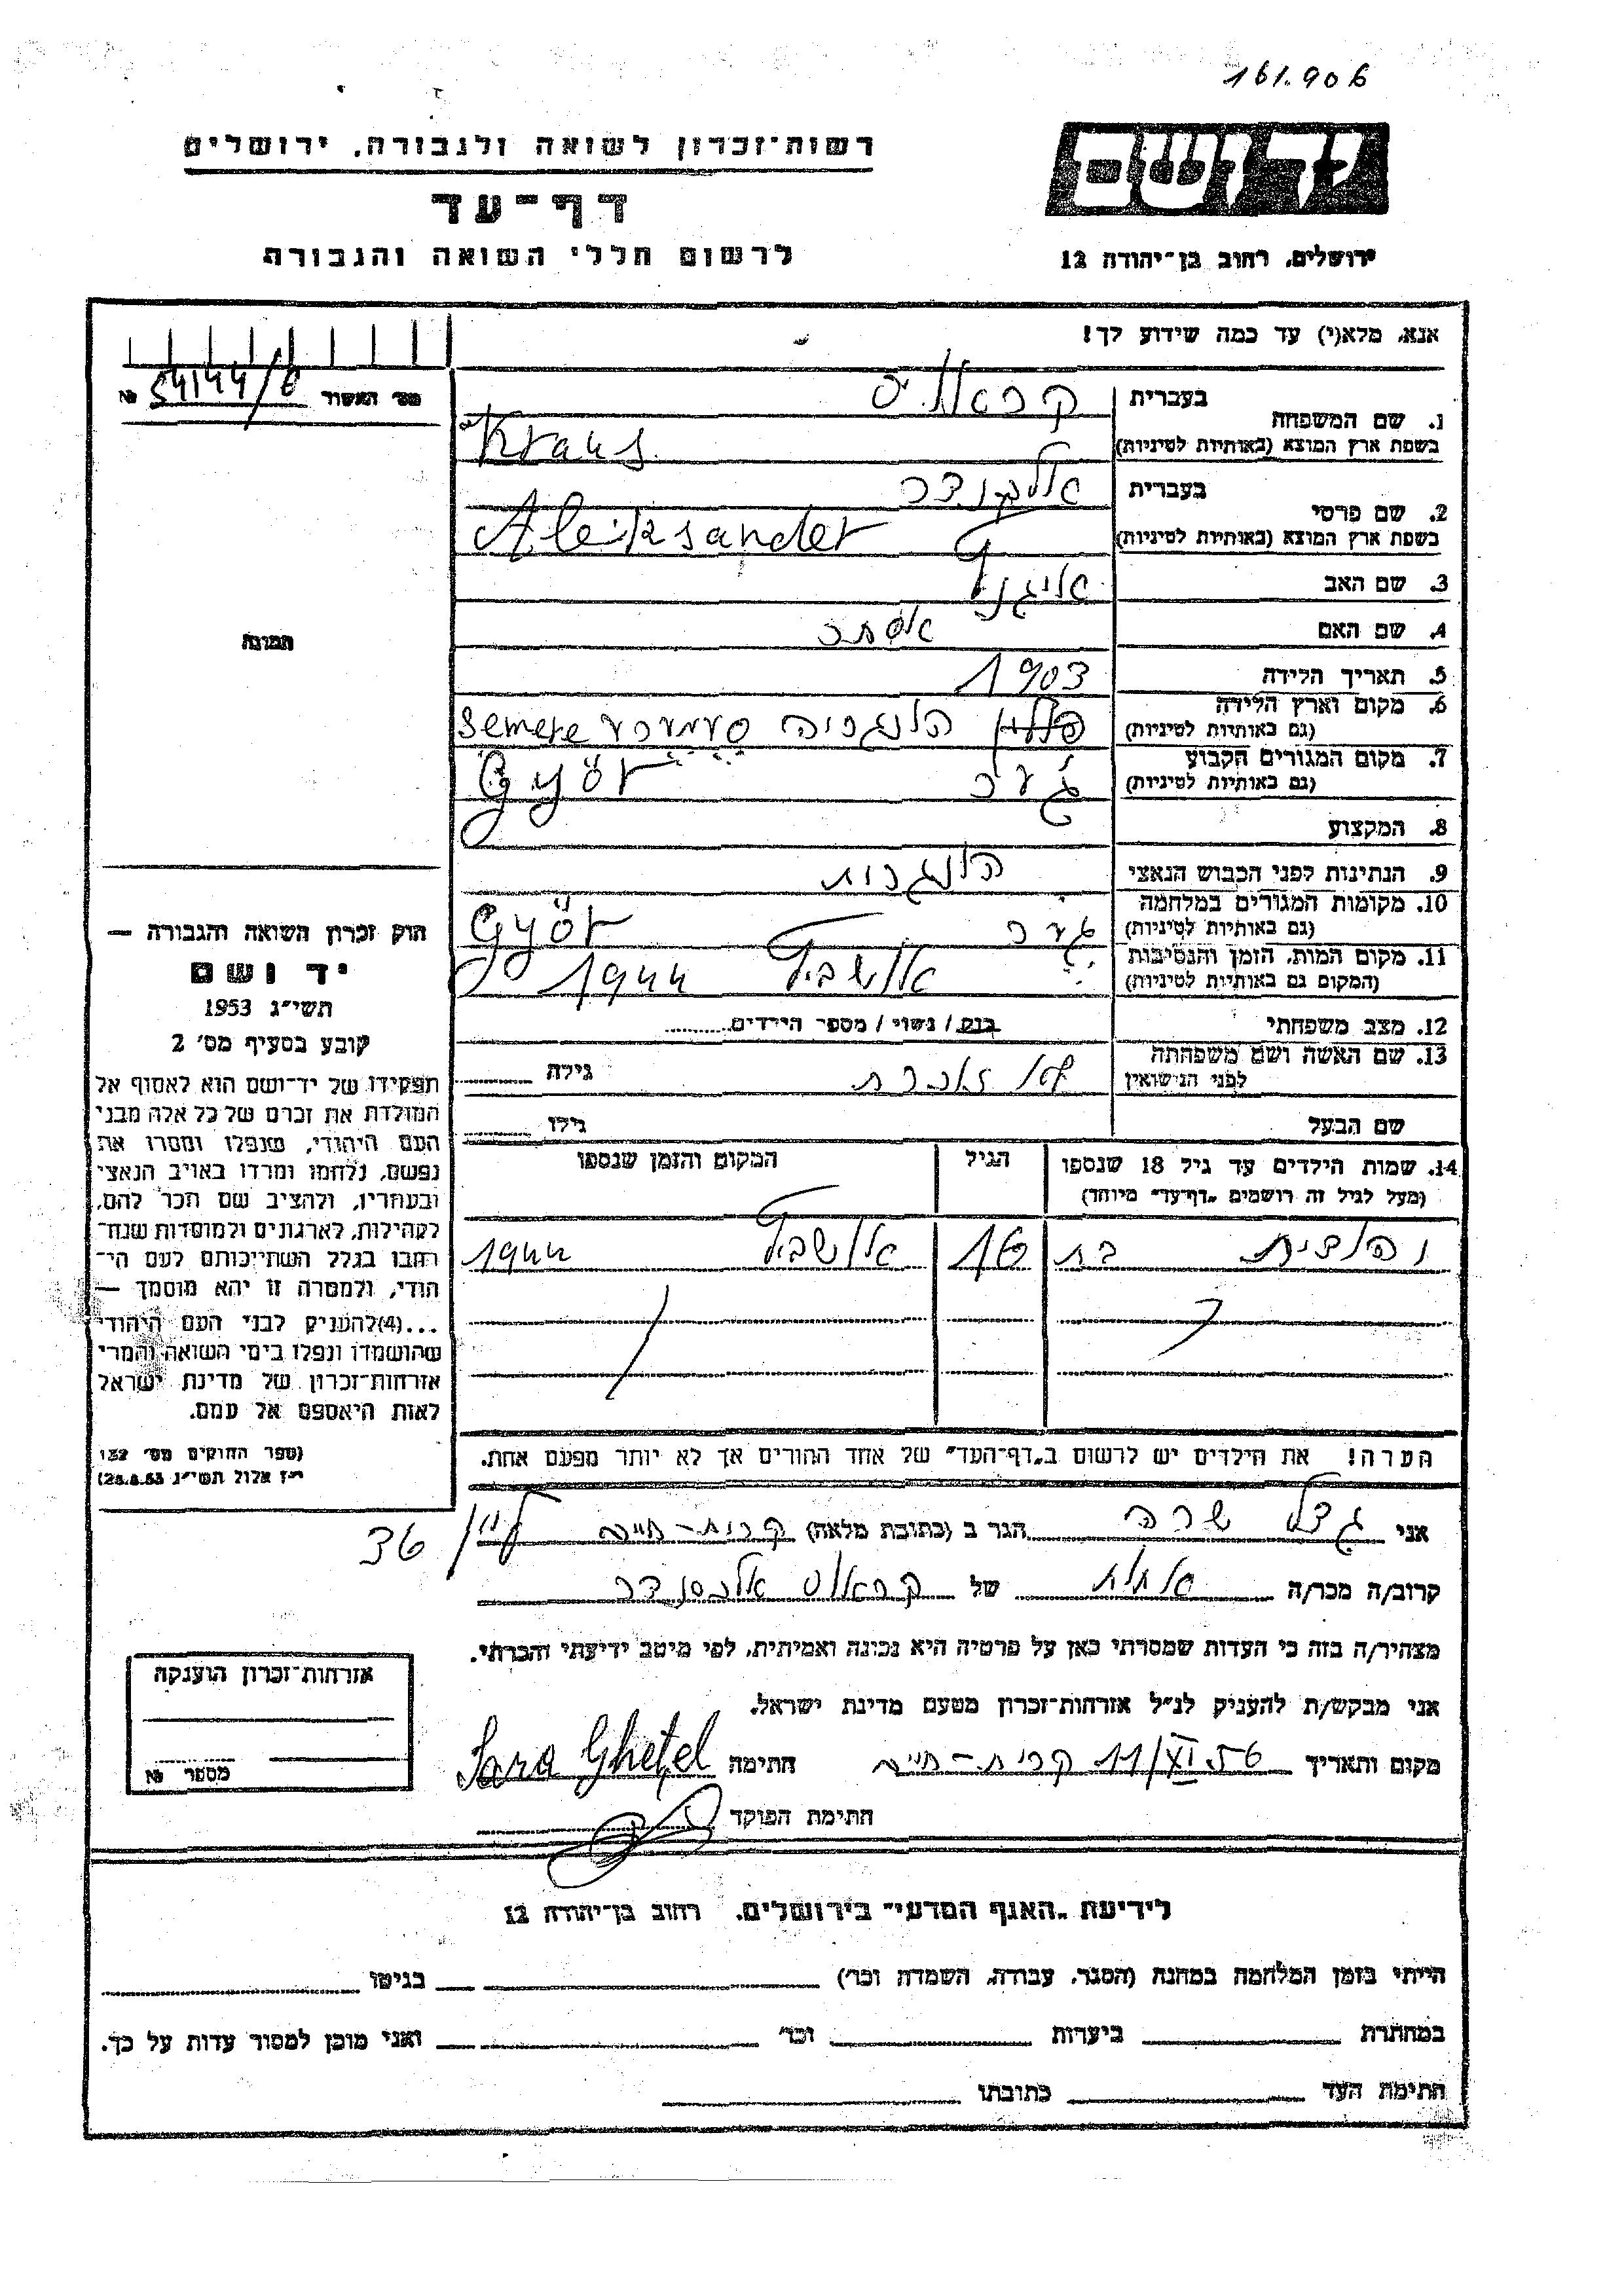 161.906
יד ושם
ירושלים, רחוב בן-יהודה 12
רשות-זכרון לשואה ולגבורה, ירושלים
דף-עד
לרשום חללי השואה והגבורה
אנא, מלא(י) עד כמה שידוע לך!
1. שם המשפחה
בעברית קראוס
בשפת ארץ המוצא (באותיות לטיניות) Kraus
2. שם פרטי
בעברית
בשפת ארץ המוצא (באותיות לטיניות) Aleiksander
3. שם האב
4. שם האם אסתר
5. תאריך הלידה 1903
6. מקום וארץ הלידה
(גם באותיות לטיניות) הונגריה סעמערע Semere
7. מקום המגורים הקבוע
(גם באותיות לטיניות) גער Györ
8. המקצוע
9. הנתינות לפני הכבוש הנאצי הונגרית
10. מקומות המגורים במלחמה
(גם באותיות לטיניות) Györ
11. מקום המות, הזמן והנסיבות
(המקום גם באותיות לטיניות) אושביץ 1944
12. מצב משפחתי רוק / נשוי / מספר הילדים
13. שם האשה ושם משפחתה
לפני הנישואין גילה
שם הבעל גילו
14. שמות הילדים עד גיל 18 שנספו
(מעל לגיל זה רושמים "דף-עד" מיוחד)
הגיל
המקום והזמן שנספו
יהודית בת 16 אושביץ 1944
הערה! את הילדים יש לרשום ב"דף-העד" של אחד ההורים אך לא יותר מפעם אחת.
מס' האשור № 54144/6
תמונה
חוק זכרון השואה והגבורה —
יד ושם
תשי"ג 1953
קובע בסעיף מס' 2
תפקידו של יד-ושם הוא לאסוף אל
המולדת את זכרם של כל אלה מבני
העם היהודי, שנפלו ומסרו את
נפשם, נלחמו ומרדו באויב הנאצי
ובעוזריו, ולהציב שם וזכר להם,
לקהילות, לארגונים ולמוסדות שנח-
רבו בגלל השתייכותם לעם הי-
הודי, ולמטרה זו יהא מוסמך —
...(4)להעניק לבני העם היהודי
שהושמדו ונפלו בימי השואה והמרי
אזרחות-זכרון של מדינת ישראל
לאות היאספם אל עמם.
(ספר החוקים מס' 132
י"ז אלול תשי"ג 28.8.53)
אני גצל שרה הגר ב (כתובת מלאה) קרית-חיים 36
קרוב/ה מכר/ה אחות של קראוס אלכסנדר
מצהיר/ה בזה כי העדות שמסרתי כאן על פרטיה היא נכונה ואמיתית, לפי מיטב ידיעתי והכרתי.
אני מבקש/ת להעניק לנ"ל אזרחות-זכרון מטעם מדינת ישראל.
מקום ותאריך 11/XI 56 קרית-חיים חתימה Sara Ghețel
חתימת הפוקד
אזרחות-זכרון הוענקה
מספר №
לידיעת "האגף המדעי" בירושלים, רחוב בן-יהודה 12
הייתי בזמן המלחמה במחנה (הסגר, עבודה, השמדה וכו') בגיטו
במחתרת ביערות וכו' ואני מוכן למסור עדות על כך.
חתימת העד כתובתו